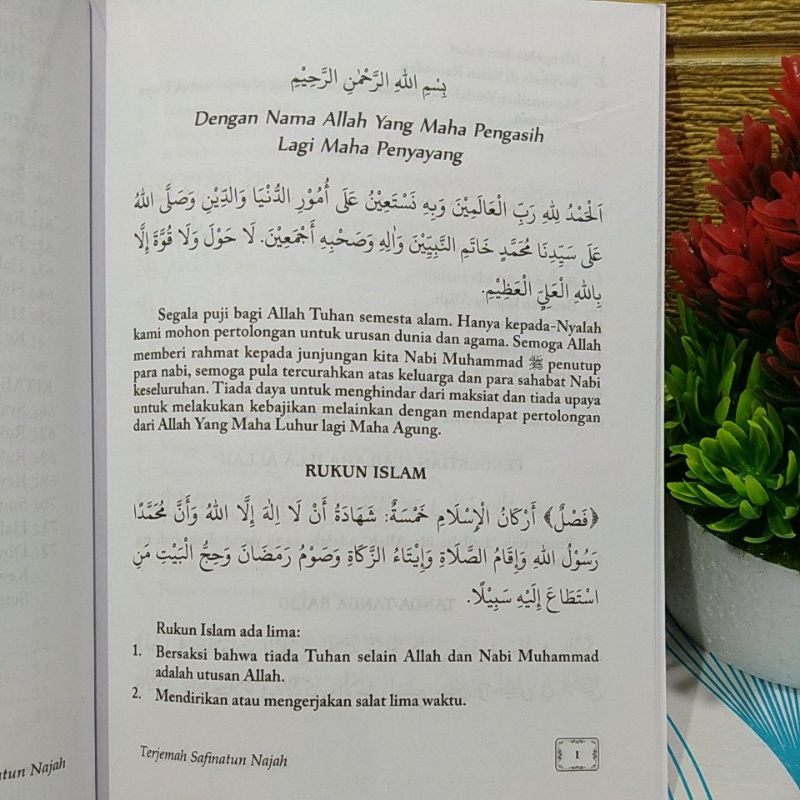 بِسْمِ اللهِ الرَّحْمٰنِ الرَّحِيْمِ
Dengan Nama Allah Yang Maha Pengasih
Lagi Maha Penyayang
اَلْحَمْدُ لِلهِ رَبِّ الْعَالَمِيْنَ وَبِهِ نَسْتَعِيْنُ عَلَى أُمُوْرِ الدُّنْيَا وَالدِّيْنِ وَصَلَّى اللهُ
عَلَى سَيِّدِنَا مُحَمَّدٍ خَاتِمِ النَّبِيِّيْنَ وَاٰلِهِ وَصَحْبِهِ أَجْمَعِيْنَ. لَا حَوْلَ وَلَا قُوَّةَ إِلَّا
بِاللهِ الْعَلِيِّ الْعَظِيْمِ.
Segala puji bagi Allah Tuhan semesta alam. Hanya kepada-Nyalah
kami mohon pertolongan untuk urusan dunia dan agama. Semoga Allah
memberi rahmat kepada junjungan kita Nabi Muhammad ﷺ penutup
para nabi, semoga pula tercurahkan atas keluarga dan para sahabat Nabi
keseluruhan. Tiada daya untuk menghindar dari maksiat dan tiada upaya
untuk melakukan kebajikan melainkan dengan mendapat pertolongan
dari Allah Yang Maha Luhur lagi Maha Agung.
RUKUN ISLAM
﴿فَصْلٌ﴾ أَرْكَانُ الْإِسْلَامِ خَمْسَةٌ: شَهَادَةُ أَنْ لَا اِلٰهَ إِلَّا اللهُ وَأَنَّ مُحَمَّدًا
رَسُوْلُ اللهِ وَإِقَامُ الصَّلَاةِ وَإِيْتَاءُ الزَّكَاةِ وَصَوْمُ رَمَضَانَ وَحِجُّ الْبَيْتِ مَنِ
اسْتَطَاعَ إِلَيْهِ سَبِيْلًا.
Rukun Islam ada lima:
1. Bersaksi bahwa tiada Tuhan selain Allah dan Nabi Muhammad
adalah utusan Allah.
2. Mendirikan atau mengerjakan salat lima waktu.
Terjemah Safinatun Najah
1